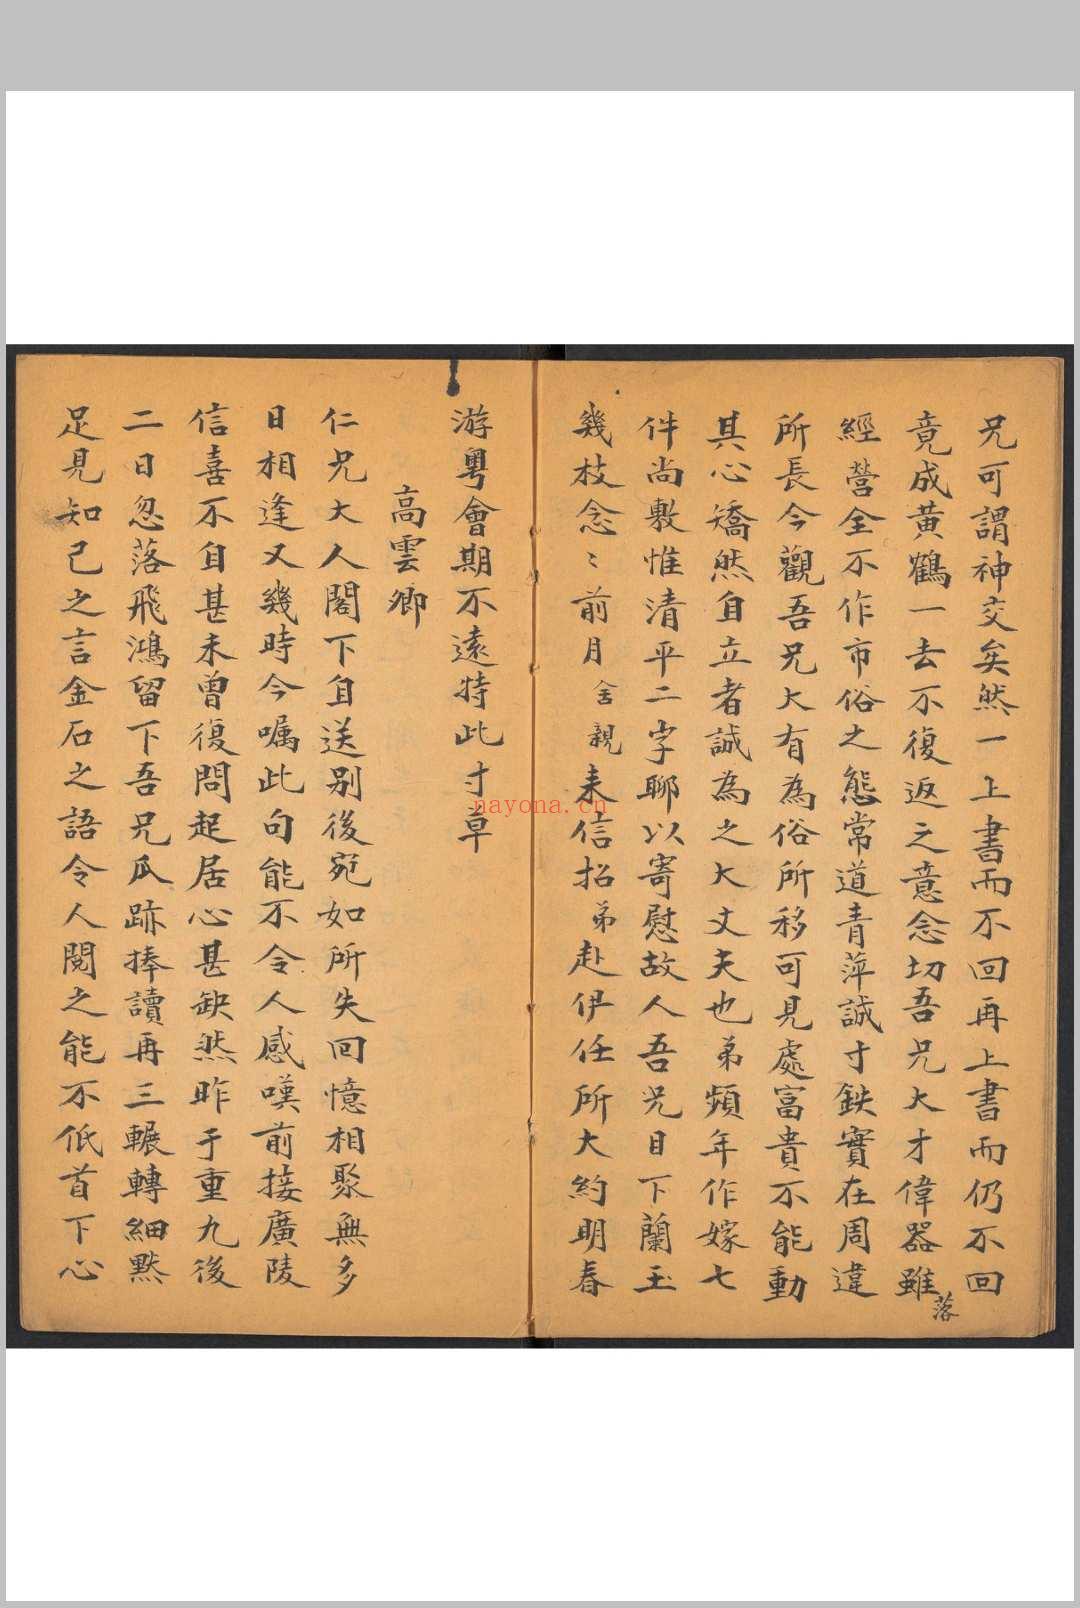 兄可謂神交矣然一上書而不回再上書而仍不回
竟成黄鶴一去不復返之意念切吾兄大才偉器雖落
經營全不作市俗之態常道青萍誠寸鉄實在周違
所長今觀吾兄大有為俗所移可見處富貴不能動
其心矯然自立者誠為之大丈夫也弟頻年作嫁七
件尚敷惟清平二字聊以寄慰故人吾兄目下蘭玉
幾枝念〻前月舍親来信招弟赴伊任所大約明春
游粤會期不遠特此寸草
高雲卿
仁兄大人閣下自送别後宛如所失回憶相聚無多
日相逢又幾時今嘱此句能不令人感嘆前接廣陵
信喜不自甚未曾復問起居心甚缺然昨于重九後
二日忽落飛鴻留下吾兄瓜跡捧讀再三輾轉細黙
足見知己之言金石之語令人閱之能不低首下心
nayona.cn